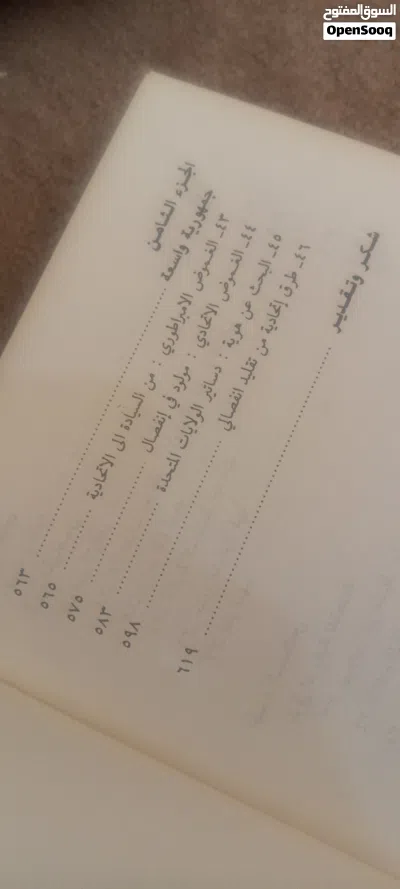 السوق المفتوح
OpenSooq
الجزء الثامن
جمهورية واسعة ................ ٥٦٣
٤٣ـ الغموض الامبراطوري : من السيادة الى الاتحادية ........ ٥٦٥
٤٤ـ الغموض الاتحادي : مولود في إنفصال ................ ٥٧٥
٤٥ـ البحث عن هوية : دساتير الولايات المتحدة ............ ٥٨٣
٤٦ـ طرق إتحادية من تقليد انفصالي ................ ٥٩٨
شكر وتقدير ................ ٦١٩